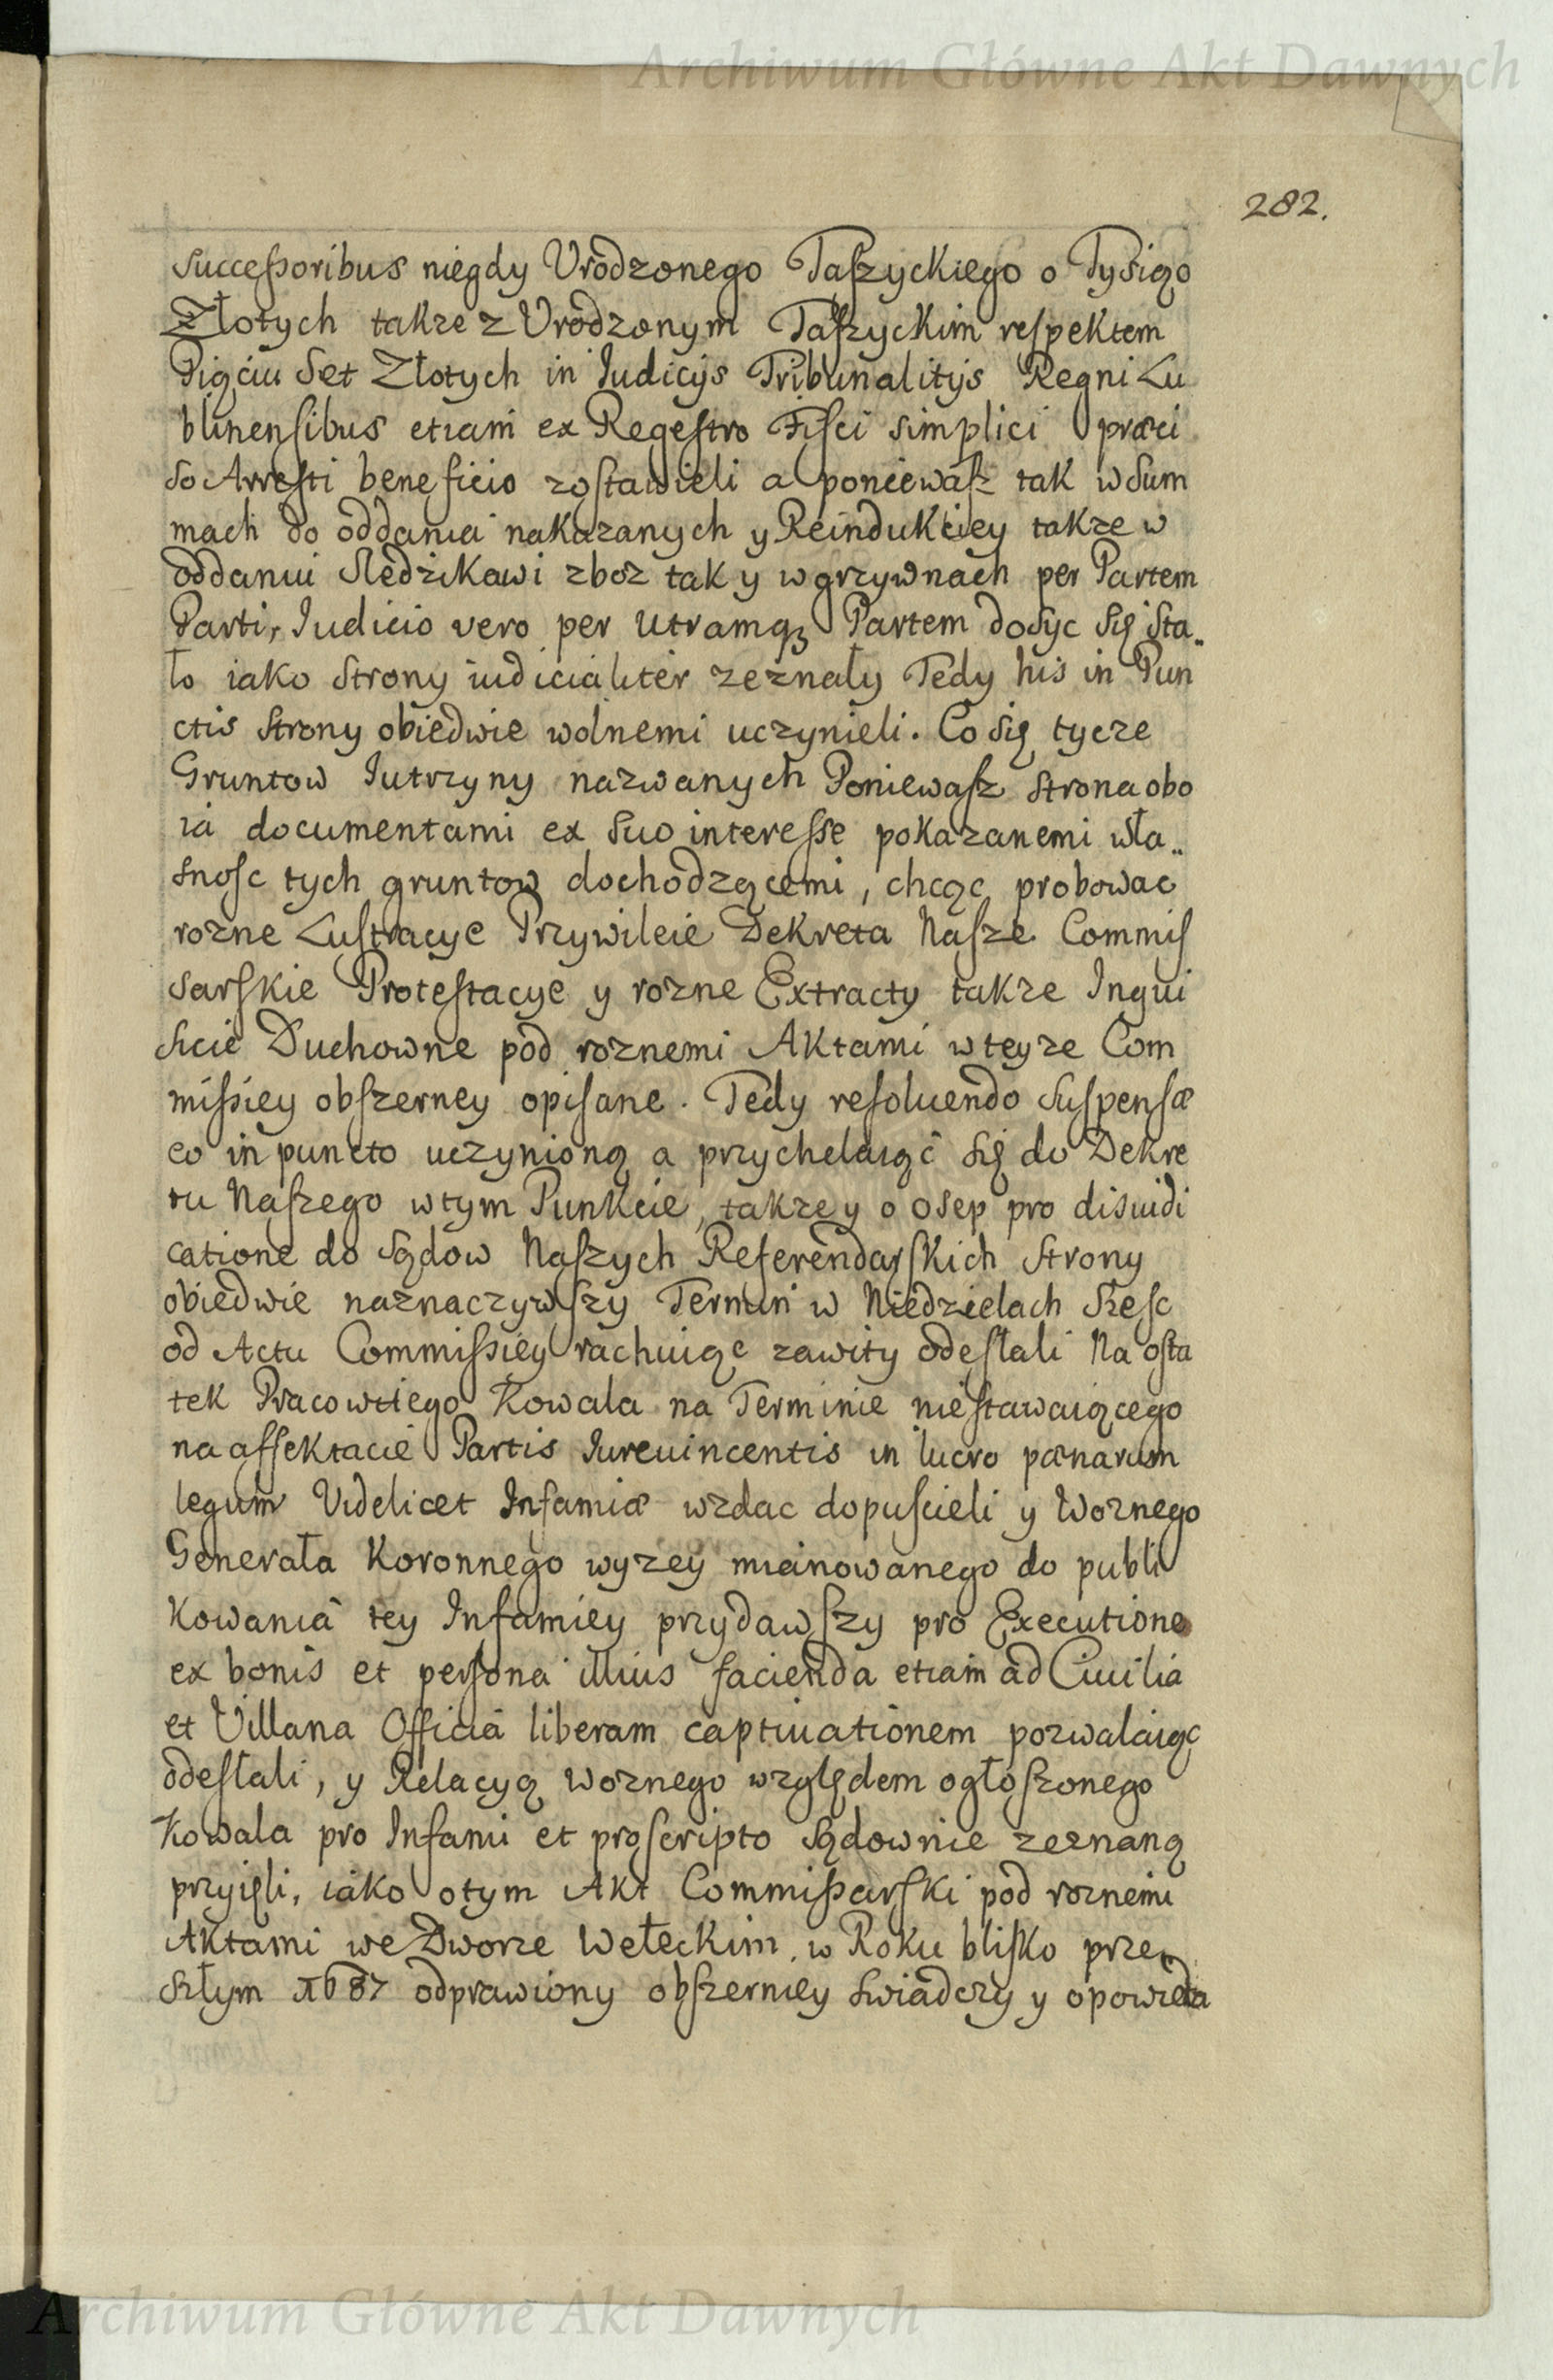 Archiwum Główne Akt Dawnych
282.
successoribus niegdy Vrodzonego Taszyckiego o Tysiąo
Złotych takze z Vrodzonym Taszyckim respektem
Pięciu Set Złotych in Iudicijs Tribunalitijs Regni Lu
blinensibus etiam ex Regestro Fisci simplici præci
so Arresti beneficio zostawieli a poniewasz tak w Sum
mach do oddania nakazanych y Reindukciey takze w
oddaniu Sledzikowi zboz tak y w grzywnach per Partem
Parti, Iudicio vero per utramqꝫ Partem dosyc się sta„
ło iako Strony iudicialiter zeznały Tedy his in Pun
ctis Strony obiedwie wolnemi uczynieli. Co się tycze
Gruntow Iutrzyny nazwanych Poniewasz strona obo
ia documentami ex suo interesse pokazanemi wła„
snosc tych gruntow dochodzącemi, chcąc probowac
rozne Lustracye Przywileie Dekreta Nasze Commis
sarskie Protestacye y rozne Extracty takze Inqui
sicie Duchowne pod roznemi Aktami w teyze Com
missiey obszerney opisane. Tedy resoluendo suspensæ
eo in puncto uczynioną a przychelaiąc się do Dekre
tu Naszego w tym Punkcie, takze y o osep pro disiudi
catione do sądow Naszych Referendarskich strony
obiedwie naznaczywszy Termin w Niedzielach szesc
od Actu Commissiey rachuiąc zawity odesłali Na osta
tek Pracowtiego Kowala na Terminie niestawaiącego
na affektacie Partis Iurevincentis in lucro pænarum
legum Videlicet Infamiæ wzdac dopuscieli y Woznego
Generała Koronnego wyzey mianowanego do publi
kowania tey Infamiey przydawszy pro Executione
ex bonis et persona illius facienda etiam ad Ciuilia
et Villana Officia liberam captiuationem pozwalaiąc
odesłali, y Relacyą Woznego względem ogłoszonego
Kowala pro Infami et proscripto sądownie zeznaną
przyięli, iako o tym Akt Commissarski pod roznemi
Aktami we Dworze Wełeckim, w Roku blisko prze
szłym 1687 odprawiony obszerniey swiadczy y opowieda
Archiwum Główne Akt Dawnych